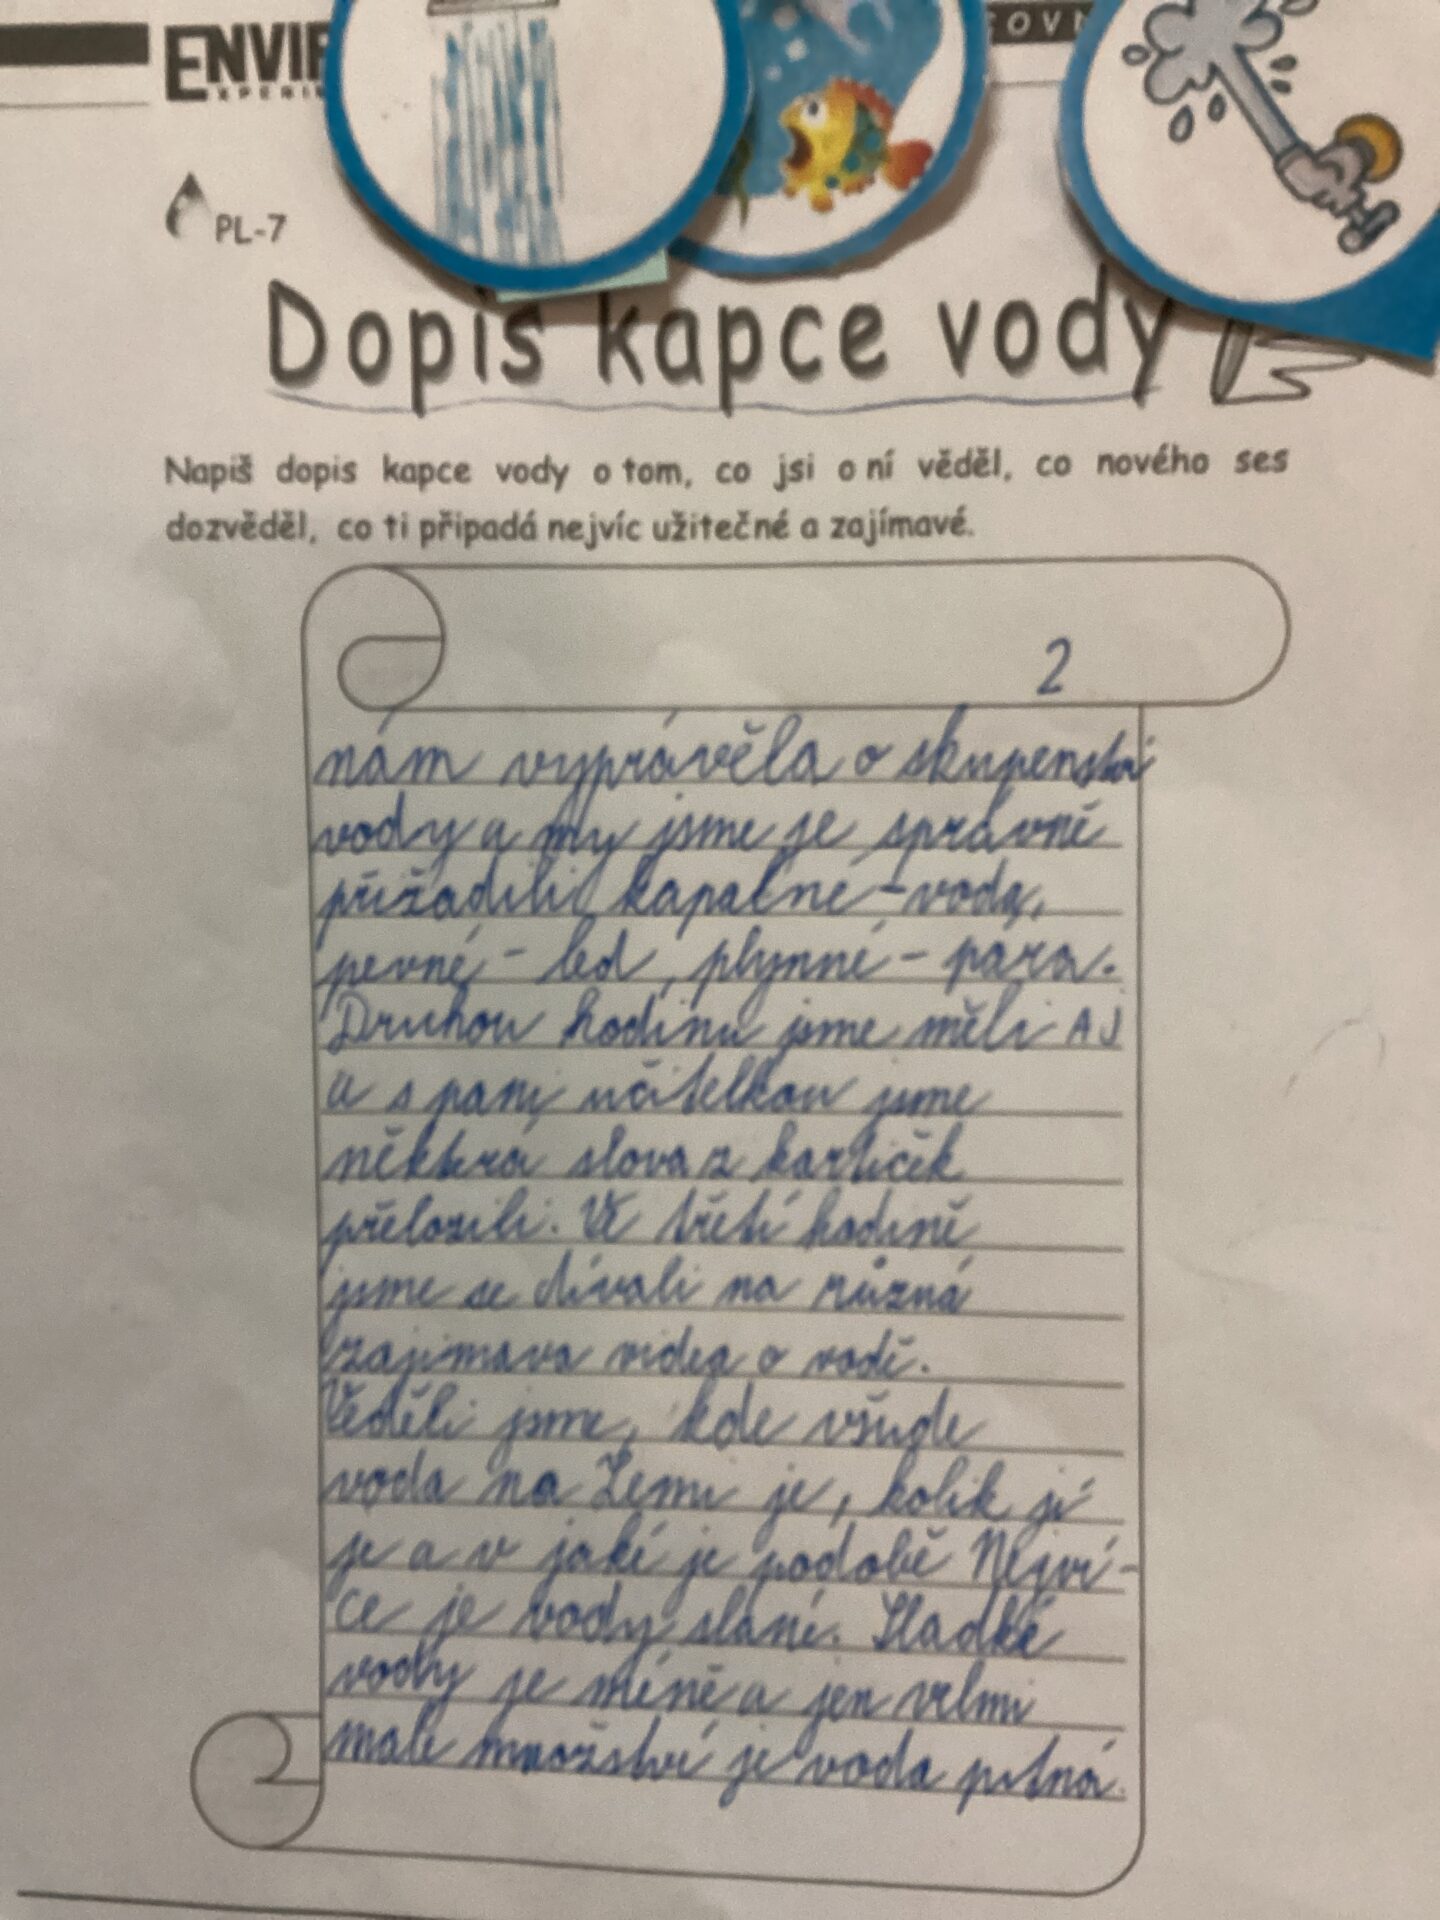 ENVI
PL-7
Dopis kapce vody
Napiš dopis kapce vody o tom, co jsi o ní věděl, co nového ses
dozvěděl, co ti připadá nejvíc užitečné a zajímavé.
2
nám vyprávěla o skupenství
vody a my jsme je správně
přiřadili kapalné - voda,
pevné - led, plynné - pára.
Druhou hodinu jsme měli AJ
a s paní učitelkou jsme
některá slova z kartiček
přeložili. Ve třetí hodině
jsme se dívali na různá
zajímava videa o vodě.
Věděli jsme, kde všude
voda na Zemi je, kolik jí
je a v jaké je podobě Nejví-
ce je vody slané. Sladké
vody je méně a jen velmi
malé množství je voda pitná.